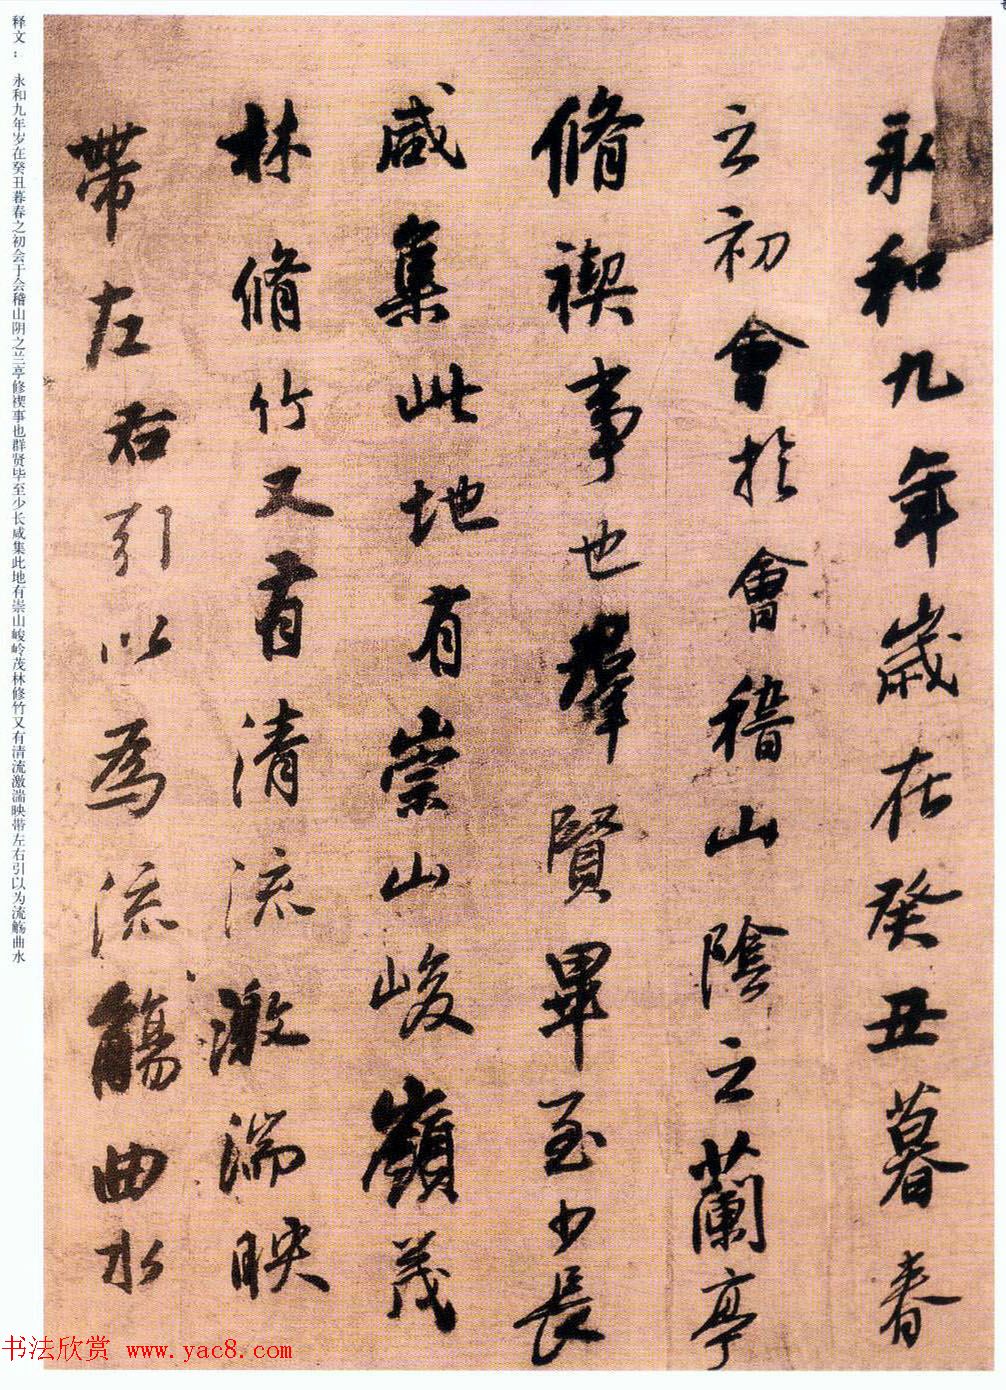 释文： 永和九年岁在癸丑暮春之初会于会稽山阴之兰亭修禊事也群贤毕至少长咸集此地有崇山峻岭茂林修竹又有清流激湍映带左右引以为流觞曲水
永和九年歲在癸丑暮春
之初會於會稽山陰之蘭亭
脩禊事也羣賢畢至少長
咸集此地有崇山峻嶺茂
林脩竹又有清流激湍映
帶左右引以為流觴曲水
书法欣赏 www.yac8.com